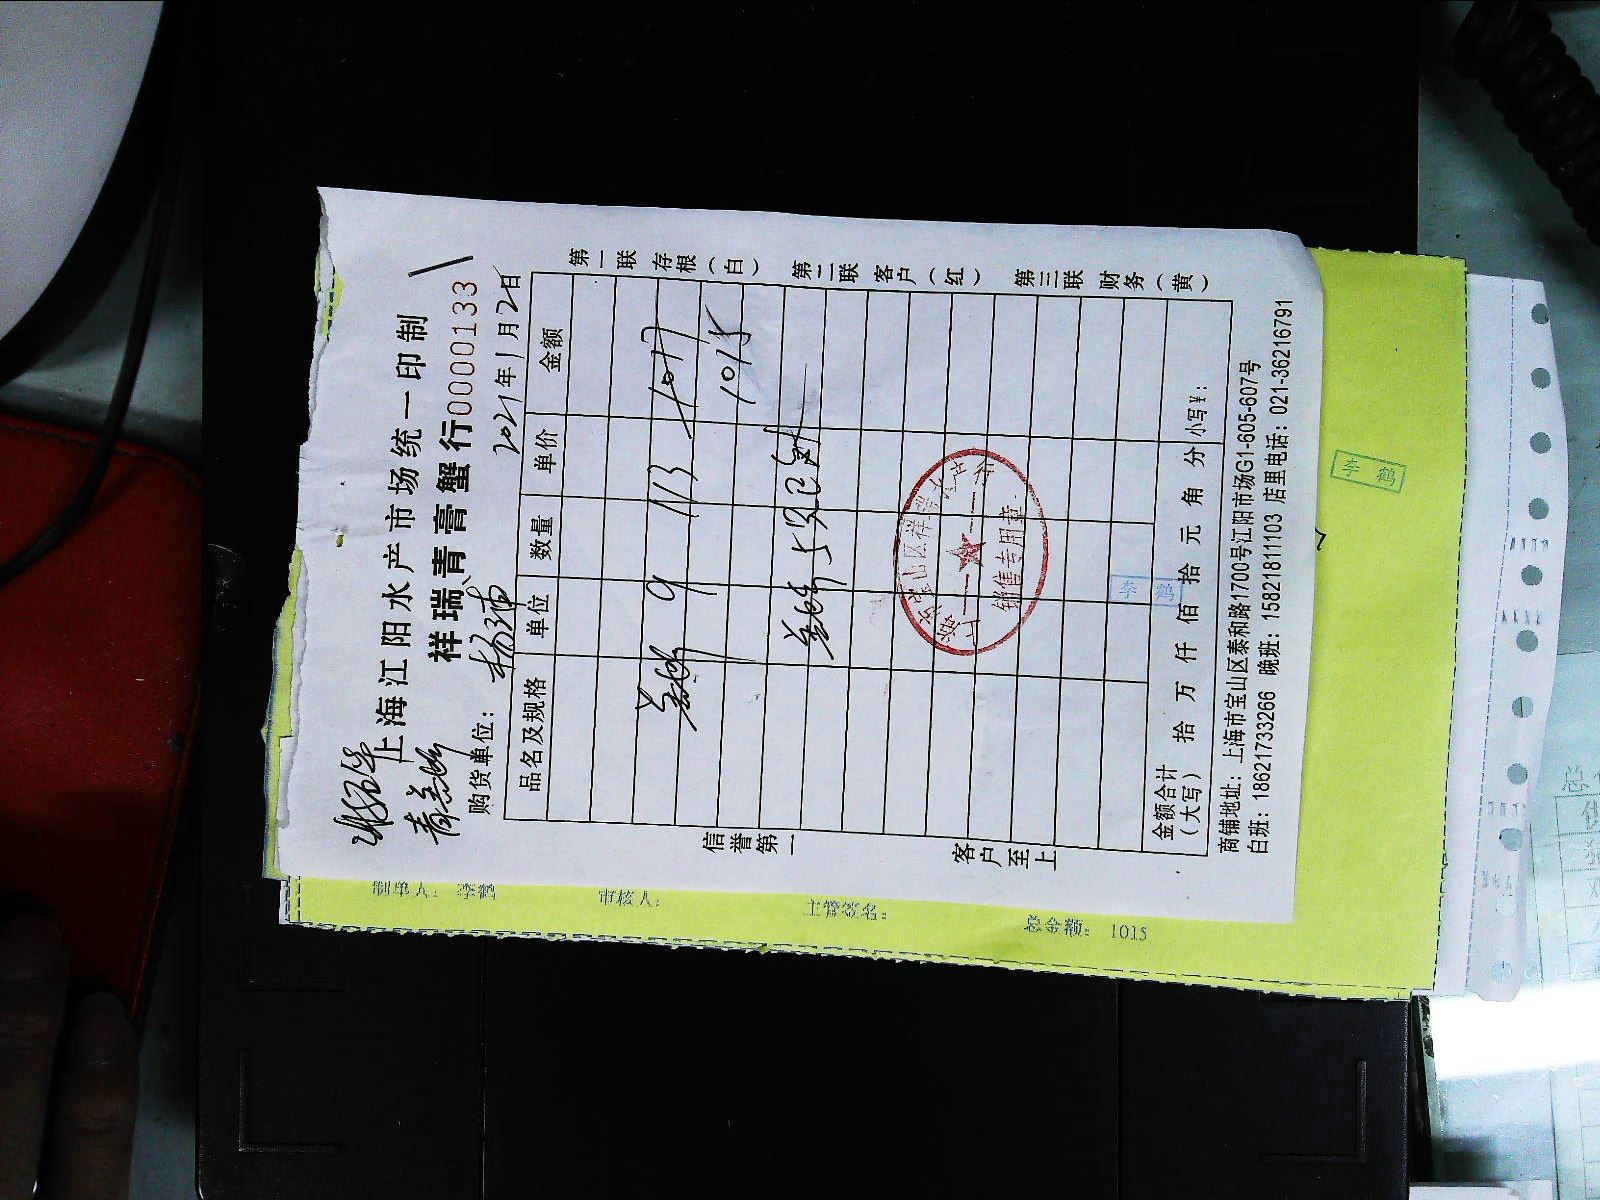 上海江阳水产市场统一印制
祥瑞青膏蟹行 0000133
购货单位： 杨浦 2021年1月2日
品名及规格 单位 数量 单价 金额
9 113 1017
1015
信誉第一
客户至上
第一联 存根（白）
第二联 客户（红）
第三联 财务（黄）
销售专用章
李鹤
金额合计（大写） 拾 万 仟 佰 拾 元 角 分 小写¥：
商铺地址：上海市宝山区泰和路1700号江阳市场G1-605-607号
白班：18621733266 晚班：15821811103 店里电话：021-36216791
李鹤
制单人： 李鹤 审核人： 总金额： 1015